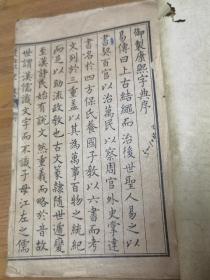 御製康熙字典序
易傳曰上古結繩而治後世聖人易之以
書契百官以治萬民以察周官外史掌達
書名於四方保氏養國子教以六書而考
文列於三重蓋以其為萬事百物之統紀
而足以助流政教也古文篆隸隨世遞變
至漢許氏始有說文然重義而略於音故
世謂漢儒識文字而不識子母江左之儒